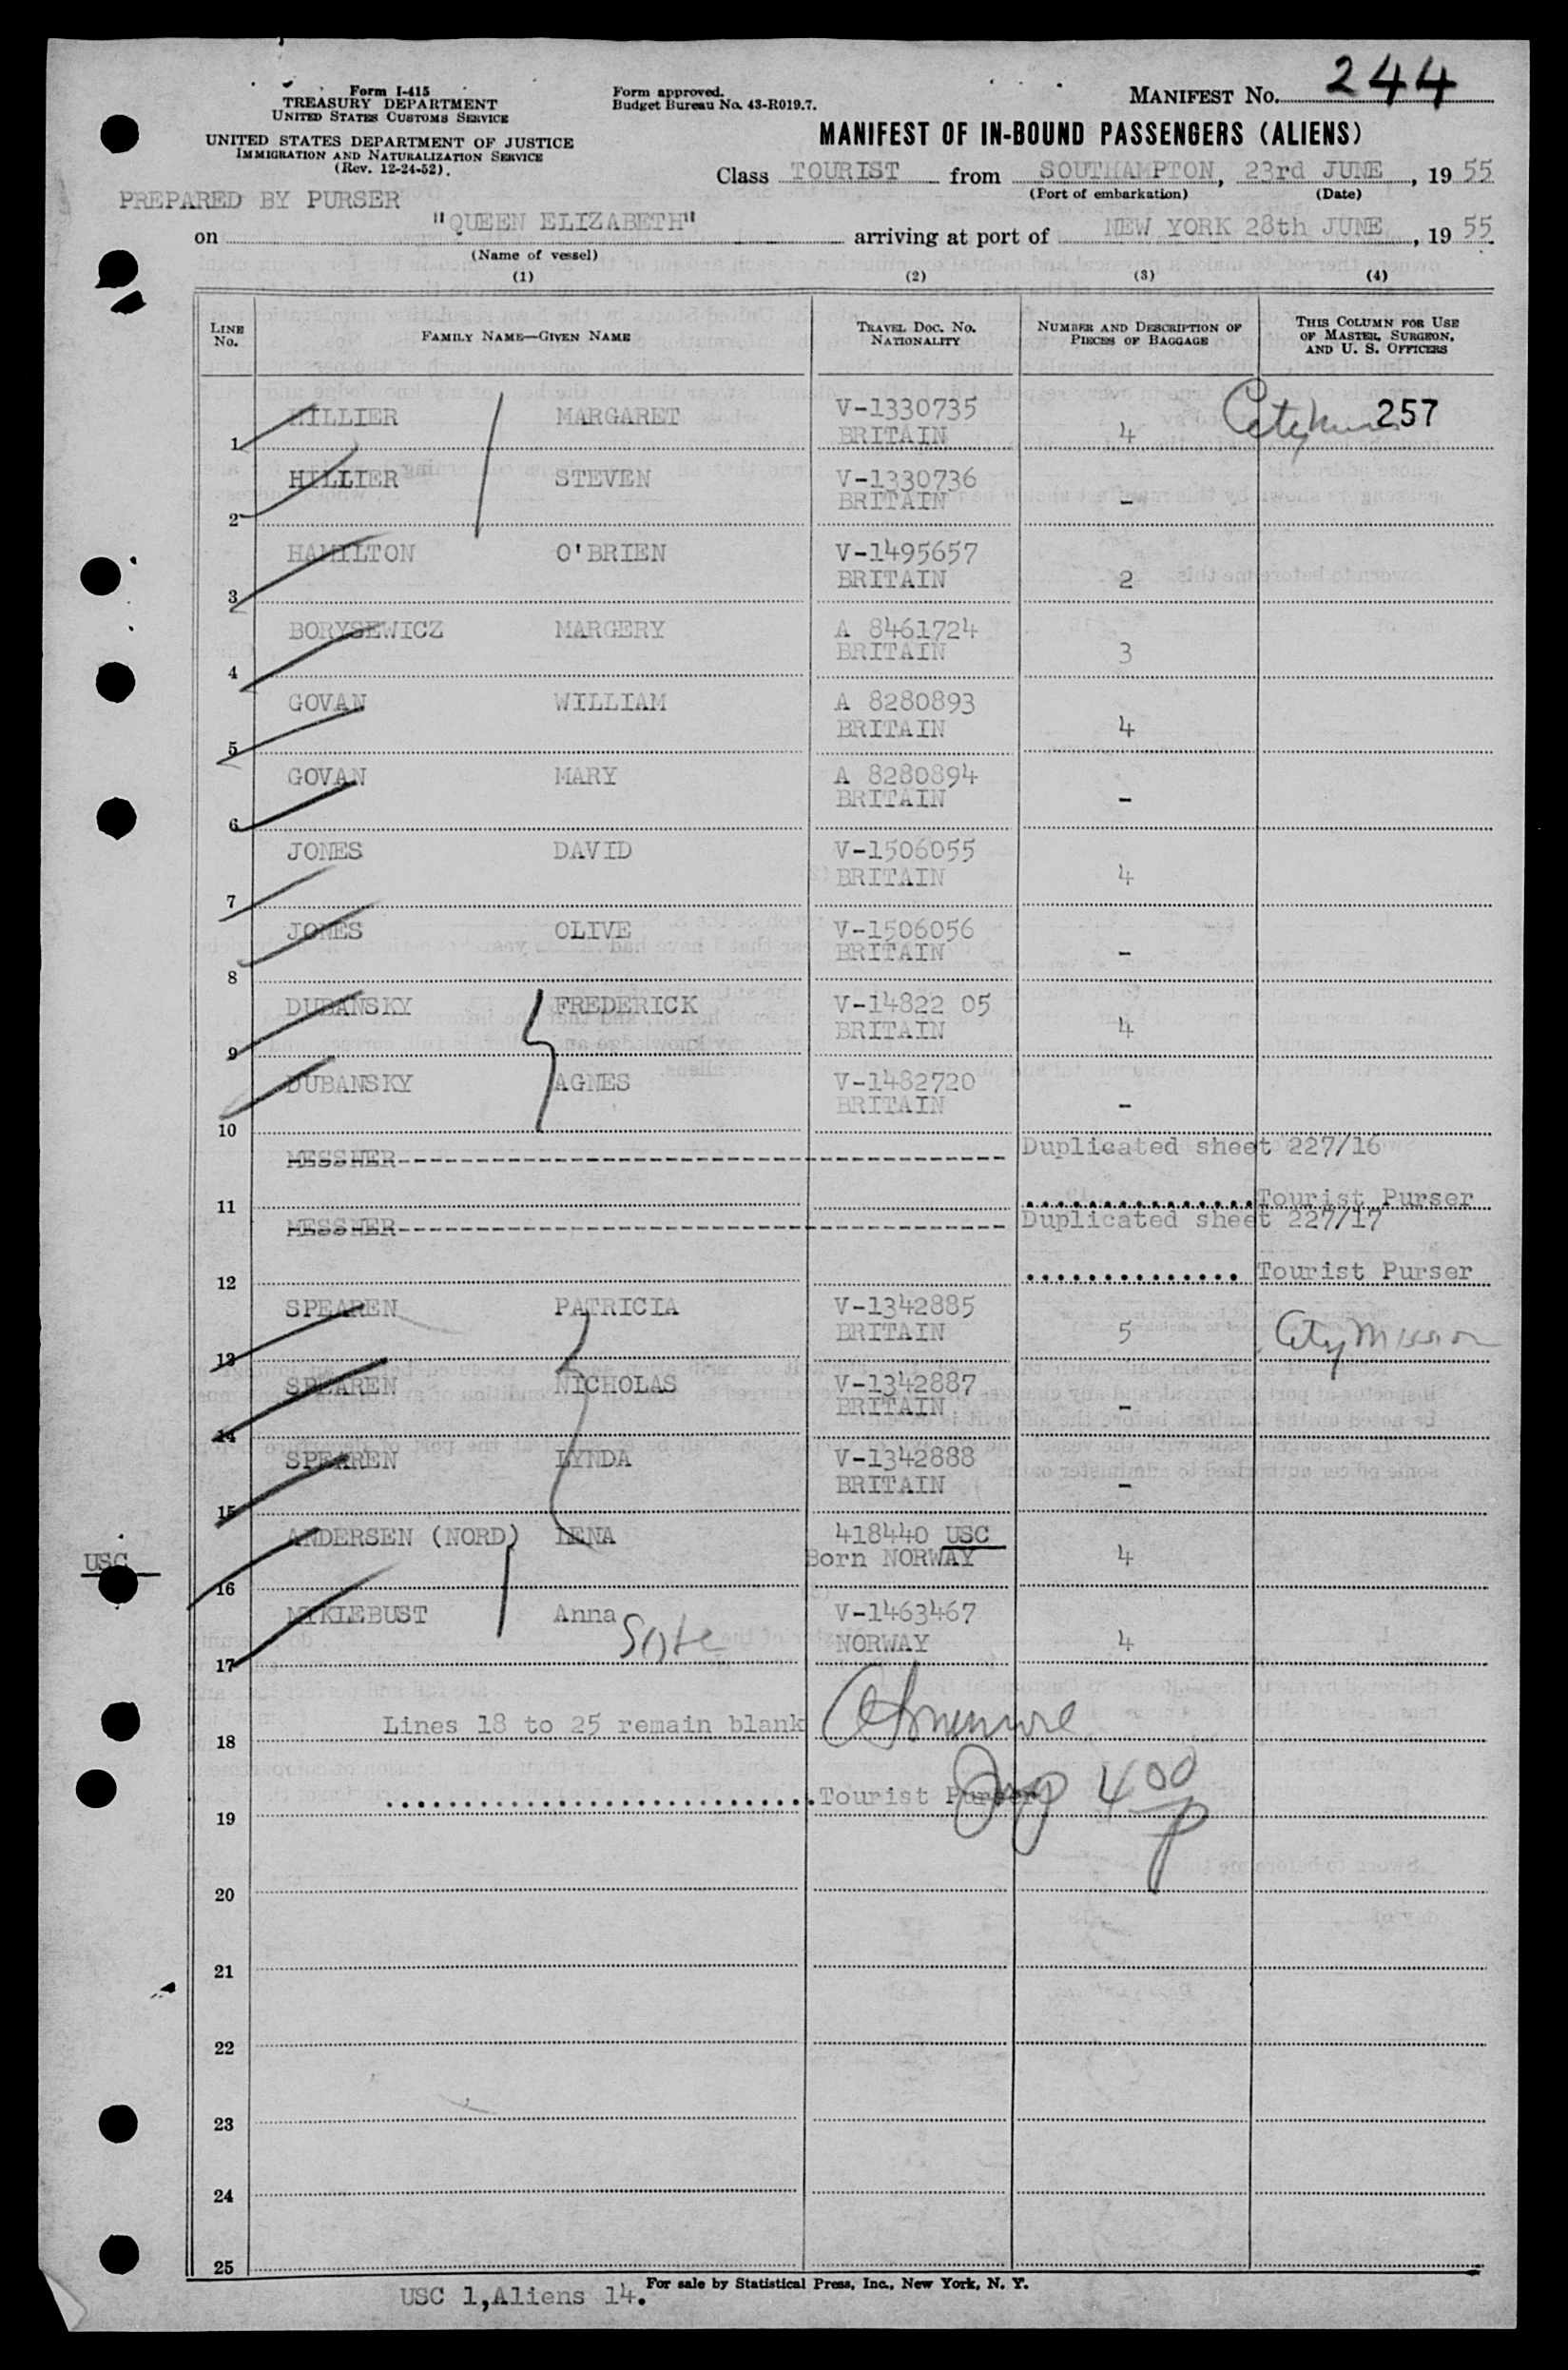 244
Form I-415
TREASURY DEPARTMENT
UNITED STATES CUSTOMS SERVICE
Form approved.
Budget Bureau No. 43-R019.7.
MANIFEST NO.
UNITED STATES DEPARTMENT OF JUSTICE
IMMIGRATION AND NATURALIZATION SERVICE
(Rev. 12-24-52).
MANIFEST OF IN-BOUND PASSENGERS (ALIENS)
Class TOURIST from SOUTHAMPTON, 23rd JUNE, 19 55
(Port of embarkation) (Date)
PREPARED BY PURSER
on "QUEEN ELIZABETH" arriving at port of NEW YORK 28th JUNE, 19 55
(Name of vessel)
(1) (2) (3) (4)
LINE NO. FAMILY NAME—GIVEN NAME TRAVEL DOC. NO. NATIONALITY NUMBER AND DESCRIPTION OF PIECES OF BAGGAGE THIS COLUMN FOR USE OF MASTER, SURGEON, AND U. S. OFFICERS
1 HILLIER MARGARET V-1330735 BRITAIN 4 257
2 HILLIER STEVEN V-1330736 BRITAIN -
3 HAMILTON O'BRIEN V-1495657 BRITAIN 2
4 BORYSEWICZ MARGERY A 8461724 BRITAIN 3
5 GOVAN WILLIAM A 8280893 BRITAIN 4
6 GOVAN MARY A 8280894 BRITAIN -
7 JONES DAVID V-1506055 BRITAIN 4
8 JONES OLIVE V-1506056 BRITAIN -
9 DUBANSKY FREDERICK V-14822 05 BRITAIN 4
10 DUBANSKY AGNES V-1482720 BRITAIN -
11 MESSNER Duplicated sheet 227/16
Tourist Purser
12 MESSNER Duplicated sheet 227/17
Tourist Purser
13 SPEAREN PATRICIA V-1342885 BRITAIN 5 City Mission
14 SPEAREN NICHOLAS V-1342887 BRITAIN -
15 SPEAREN LYNDA V-1342888 BRITAIN -
USC 16 ANDERSEN (NORD) LENA 418440 USC Born NORWAY 4
17 MYKLEBUST Anna V-1463467 NORWAY 4
18 Lines 18 to 25 remain blank
19 Tourist Purser 4 00 p
20
21
22
23
24
25
For sale by Statistical Press, Inc., New York, N. Y.
USC 1,Aliens 14.